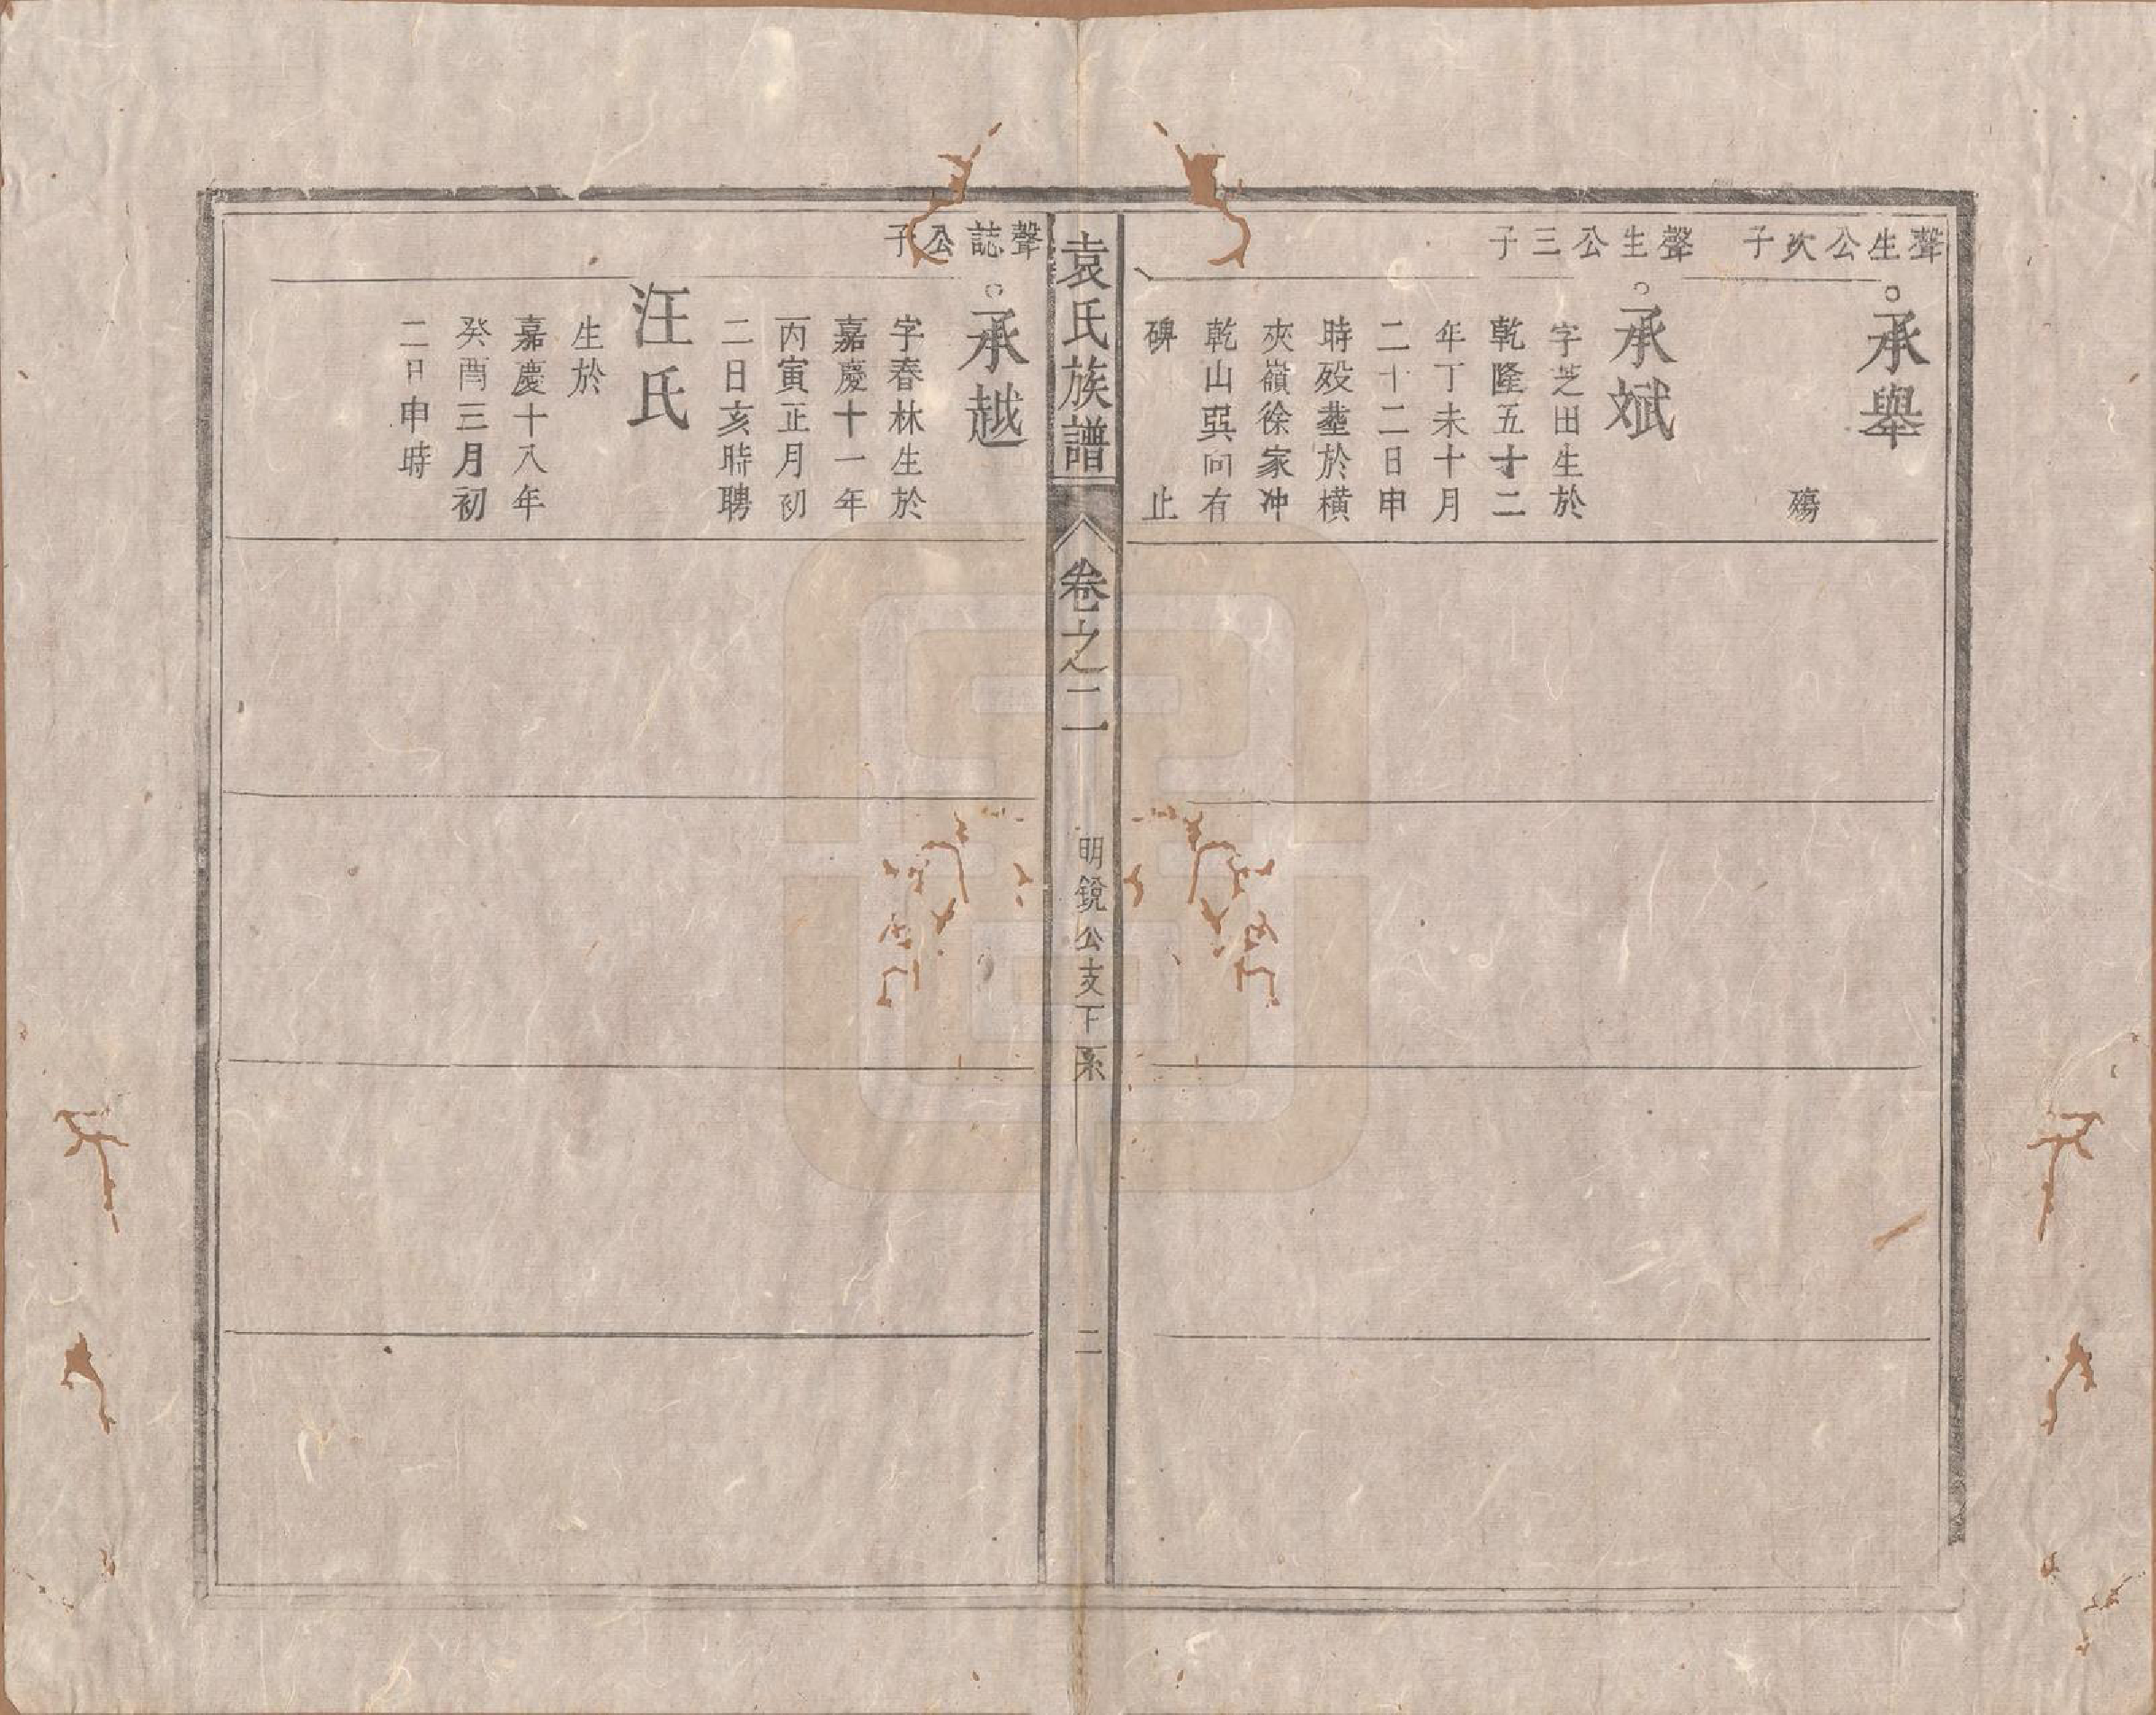 聲生公次子
承舉
殤
聲生公三子
承斌
字芝田生於
乾隆五十二
年丁未十月
二十二日申
時殁塟於橫
夾嶺徐家冲
乾山巽向有
碑止
袁氏族譜
卷之二
明鋭公支下系
二
聲誌公子
承越
字春林生於
嘉慶十一年
丙寅正月初
二日亥時聘
汪氏
生於
嘉慶十八年
癸酉三月初
二日申時